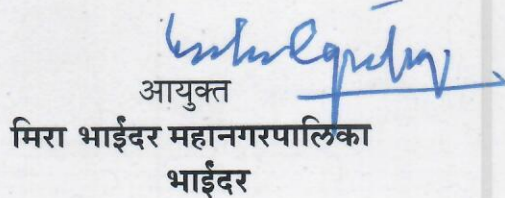 आयुक्त
मिरा भाईंदर महानगरपालिका
भाईंदर